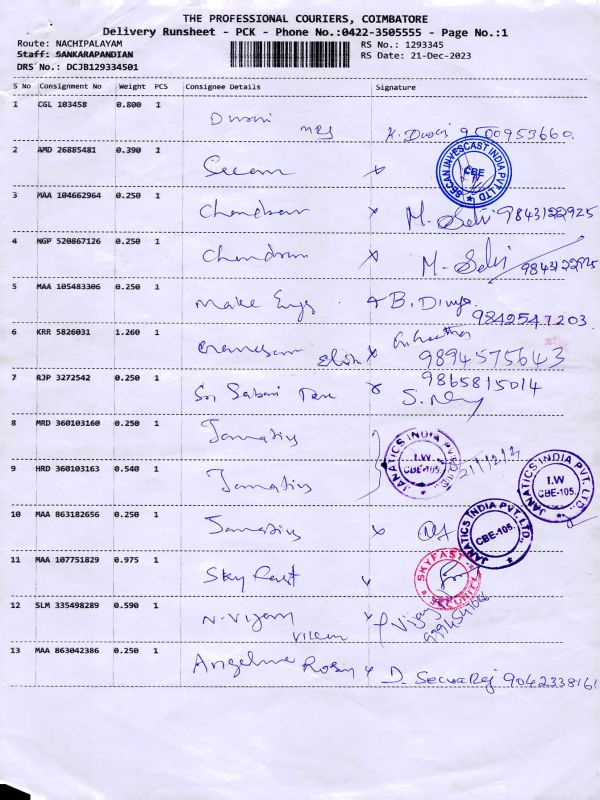 THE PROFESSIONAL COURIERS, COIMBATORE
Delivery Runsheet - PCK - Phone No.:0422-3505555 - Page No.:1
Route: NACHIPALAYAM
RS No.: 1293345
Staff: SANKARAPANDIAN
RS Date: 21-Dec-2023
DRS No.: DCJB129334501
S No Consignment No Weight PCS Consignee Details Signature
1 CGL 103458 0.800 1
9500953660
2 AMD 26885481 0.390 1 Secan
SECAN INVESCAST INDIA PVT LTD
CBE
3 MAA 104662964 0.250 1 M. Selvi 9843122925
4 NGP 520867126 0.250 1 M. Selvi 9843122925
5 MAA 105483306 0.250 1 Make Engg B. Divya
9842547203
6 KRR 5826031 1.260 1
9894575643
7 RJP 3272542 0.250 1 Sri Sabari Tex 9865815014
8 MRD 360103160 0.250 1 Janatics
JANATICS INDIA PVT. LTD.
I.W
CBE-105.
9 HRD 360103163 0.540 1 Janatics
JANATICS INDIA PVT. LTD.
I.W
CBE-105.
10 MAA 863182656 0.250 1 Janatics
JANATICS INDIA PVT. LTD.
CBE-105.
11 MAA 107751829 0.975 1 Sky Fast
SKYFAST SECURITY
12 SLM 335498289 0.590 1 N. Vijay Vijay
13 MAA 863042386 0.250 1 Angeline Rosy 9042338161